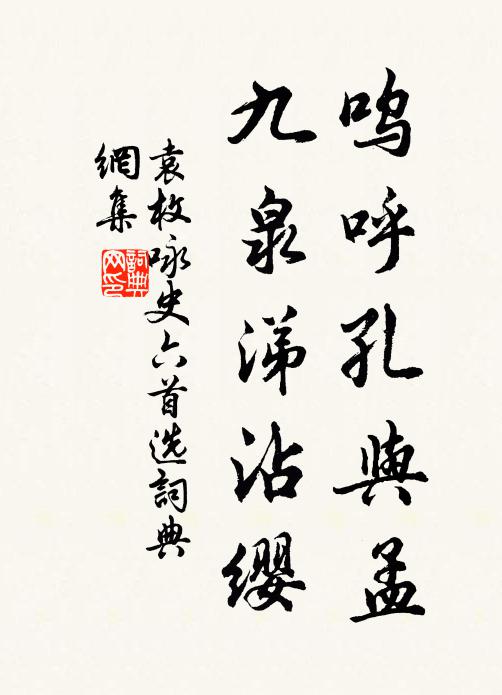 呜呼孔與孟
九泉涕沾缨
袁枚咏史六首选詞典
網集
詞典
网印